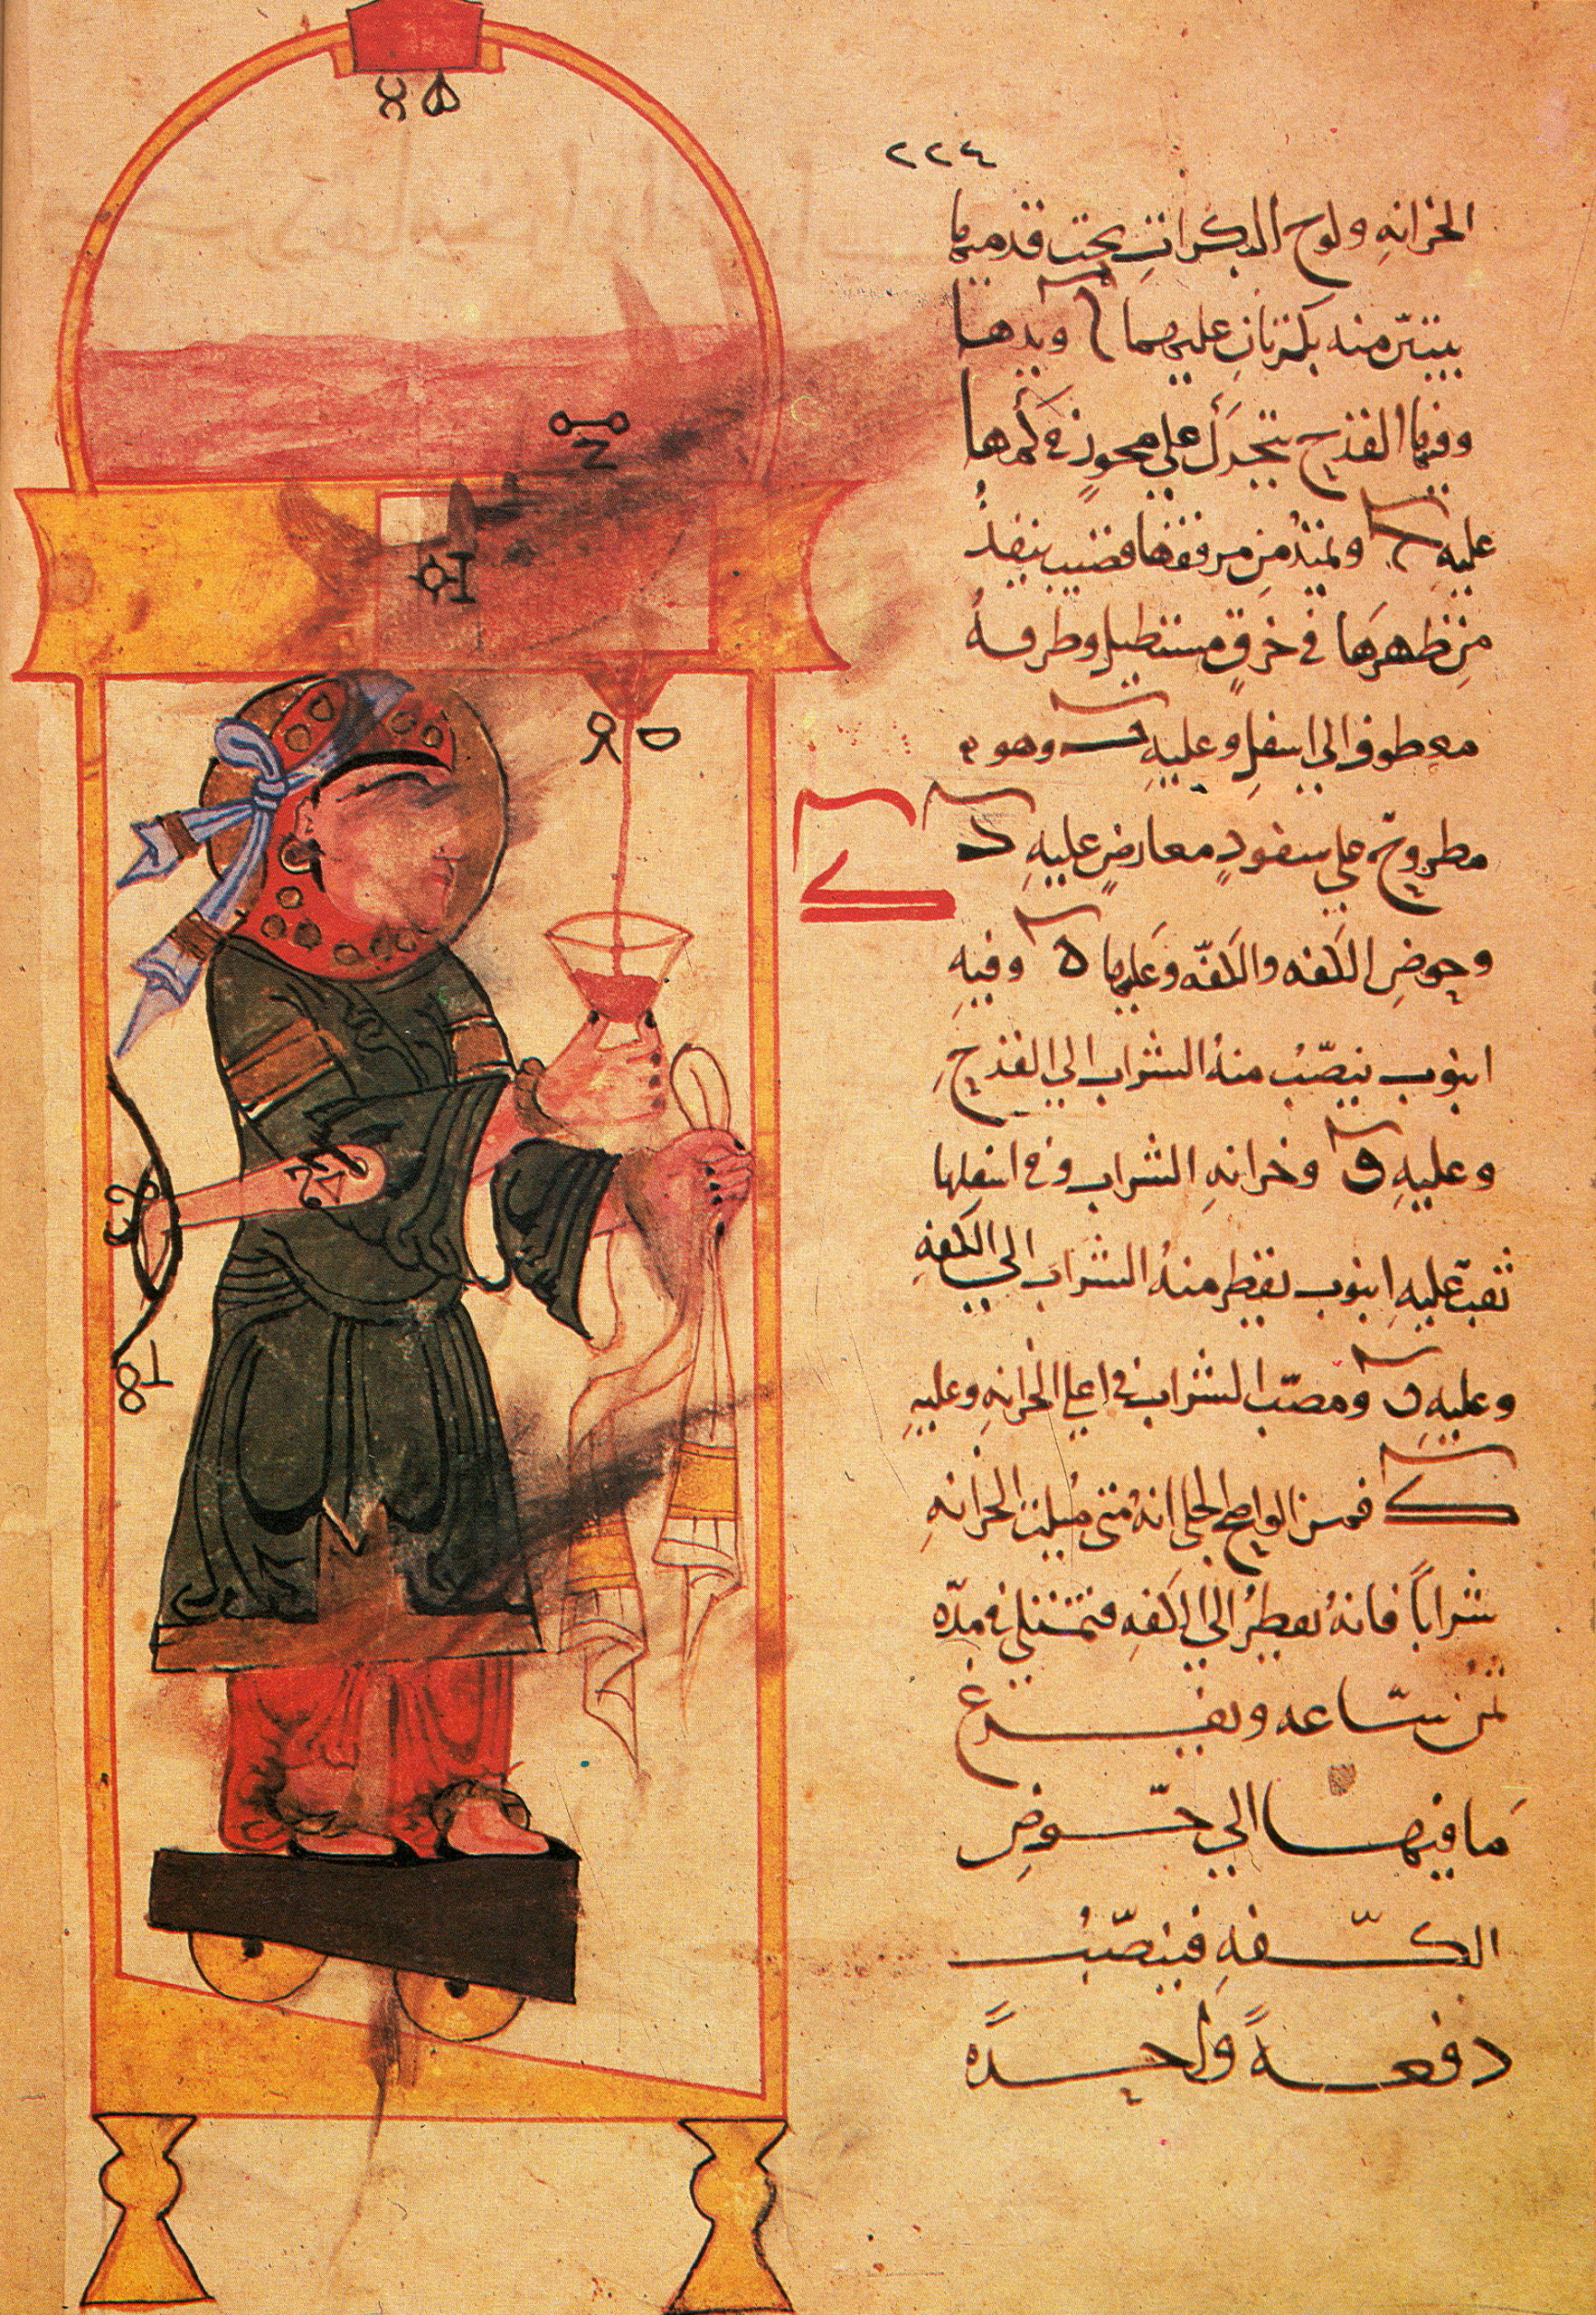 ٢٢٤
الخزانه ولوح البكرات تحت قدميها
منه بكرتان عليهما ويدها
وفيها القدح يتحرك على محور في كمها
عليه ويمتد من مرفقها قضيب ينفذ
من ظهرها في خرق مستطيل وطرفه
معطوف الى اسفل وعليه وهو
مطروح على سفود معارض عليه
وحوض الكفه والكفّه وعليها ه وفيه
انبوب ينصّب منه الشراب الى القدح
وعليه و وخزانه الشراب وفي اسفلها
ثقب عليه انبوب يقطر منه الشراب الى الكفه
وعليه ومصبّ الشراب في اعلى الخزانه وعليه
فمن الواضح الجلي انه متى مليت الخزانه
شراباً فانه يقطر الى الكفه فتمتلي في مدّه
ثمن ساعه ويفرغ
ما فيها الى حوض
الكفّه فينصّب
دفعةً واحدةً